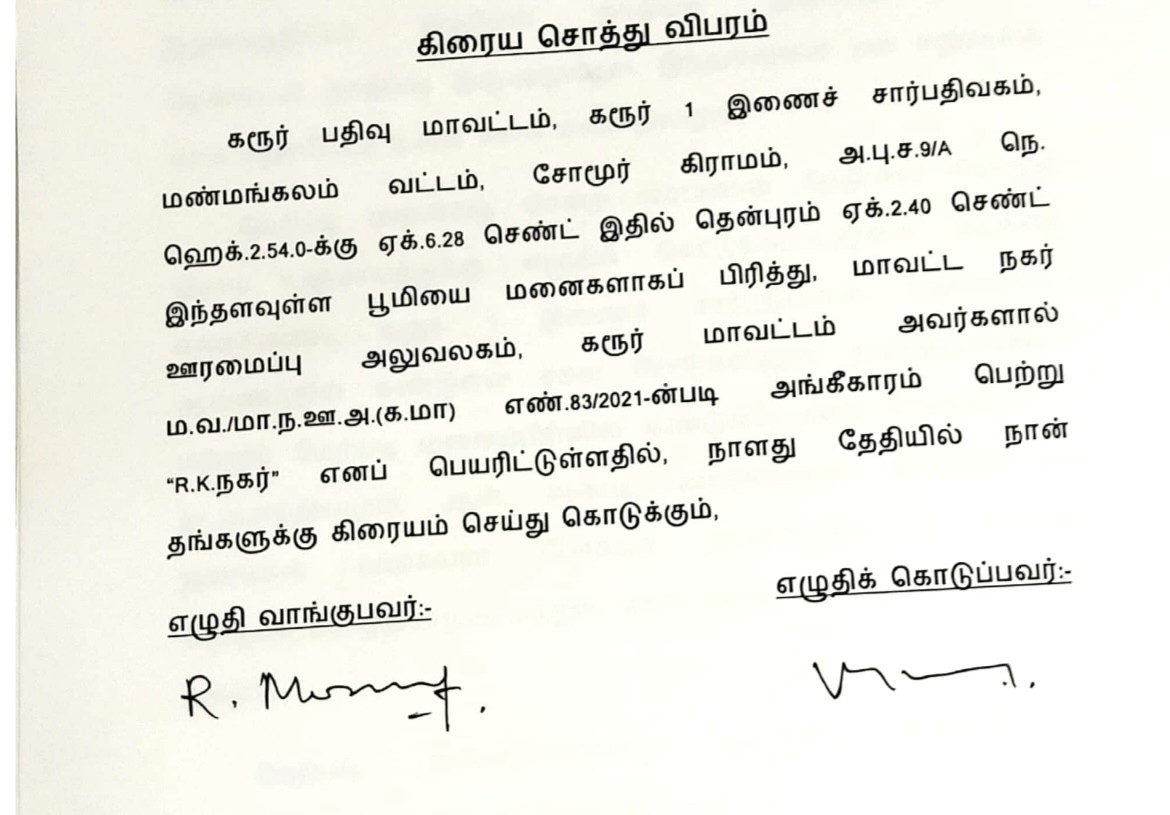 கிரைய சொத்து விபரம்
கரூர் பதிவு மாவட்டம், கரூர் 1 இணைச் சார்பதிவகம்,
மண்மங்கலம் வட்டம், சோமூர் கிராமம், அ.பு.ச.9/A நெ.
ஹெக்.2.54.0-க்கு ஏக்.6.28 செண்ட் இதில் தென்புரம் ஏக்.2.40 செண்ட்
இந்தளவுள்ள பூமியை மனைகளாகப் பிரித்து, மாவட்ட நகர்
ஊரமைப்பு அலுவலகம், கரூர் மாவட்டம் அவர்களால்
ம.வ./மா.ந.ஊ.அ.(க.மா) எண்.83/2021-ன்படி அங்கீகாரம் பெற்று
“R.K.நகர்” எனப் பெயரிட்டுள்ளதில், நாளது தேதியில் நான்
தங்களுக்கு கிரையம் செய்து கொடுக்கும்,
எழுதி வாங்குபவர்:- எழுதிக் கொடுப்பவர்:-
R.